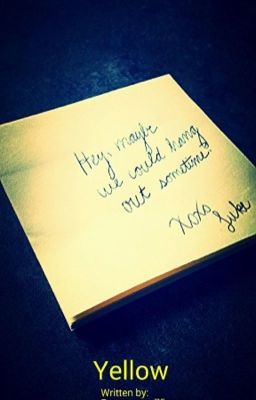 Hey, maybe
we could hang
out sometime?
XoXo
Luke
Yellow
Written by: